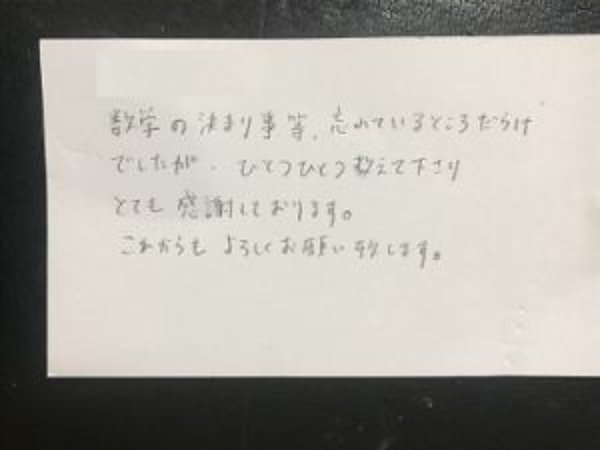 数学の決まり事等、忘れているところだらけ
でしたが、ひとつひとつ教えて下さり
とても感謝しております。
これからもよろしくお願い致します。